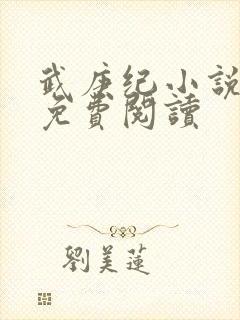 武庚纪小說
免費閱讀
劉美蓮